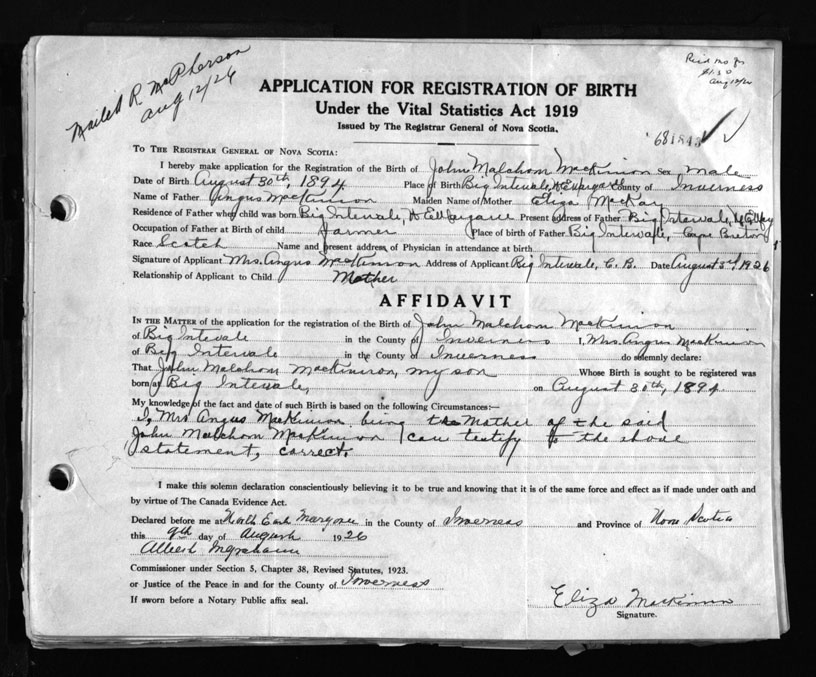 Mailed R. McPherson
Aug 12/26
Aug 12/26
APPLICATION FOR REGISTRATION OF BIRTH
Under the Vital Statistics Act 1919
Issued by The Registrar General of Nova Scotia.
To The Registrar General of Nova Scotia:
I hereby make application for the Registration of the Birth of John Malchom MacKinnon Sex Male
Date of Birth August 30th, 1894 Place of Birth Big Intervale, County of Inverness
Name of Father Angus MacKinnon Maiden Name of Mother Eliza MacKay
Residence of Father when child was born Big Intervale, Present address of Father Big Intervale,
Occupation of Father at Birth of child Farmer Place of birth of Father Big Intervale, Cape Breton
Race Scotch Name and present address of Physician in attendance at birth
Signature of Applicant Mrs. Angus MacKinnon Address of Applicant Big Intervale, C. B. Date August 3rd, 1926
Relationship of Applicant to Child Mother
AFFIDAVIT
In the Matter of the application for the registration of the Birth of John Malchom MacKinnon
of Big Intervale in the County of Inverness I, Mrs. Angus MacKinnon
of Big Intervale in the County of Inverness do solemnly declare:
That John Malchom MacKinnon, my son Whose Birth is sought to be registered was
born at Big Intervale, on August 30th, 1894.
My knowledge of the fact and date of such Birth is based on the following Circumstances:—
I, Mrs Angus MacKinnon being the Mother of the said
John Malchom MacKinnon can testify to the above
statement, correct.
I make this solemn declaration conscientiously believing it to be true and knowing that it is of the same force and effect as if made under oath and
by virtue of The Canada Evidence Act.
Declared before me at North East Margaree in the County of Inverness and Province of Nova Scotia
this 9th day of August 1926
Albert
Commissioner under Section 5, Chapter 38, Revised Statutes, 1923.
or Justice of the Peace in and for the County of Inverness
If sworn before a Notary Public affix seal.
Eliza MacKinnon
Signature.